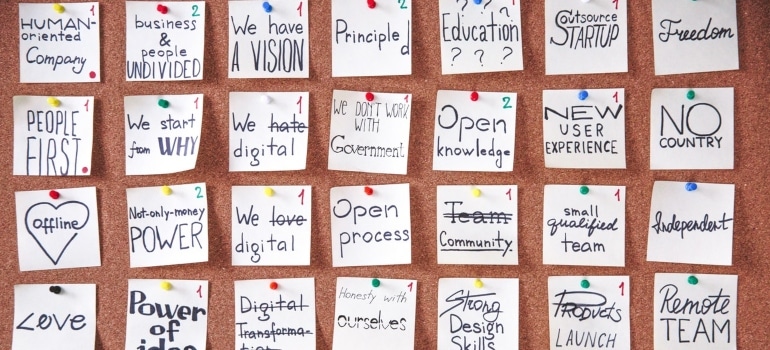 HUMAN-
oriented
Company
1
business
&
people
UNDIVIDED
2
We have
A VISION
1
Principled
2
? ? ?
Education
? ? ?
Outsource
STARTUP
1
Freedom
PEOPLE
FIRST
1
We start
from WHY
1
We hate
digital
1
WE DON'T WORK
WITH
Government
1
Open
knowledge
2
NEW
USER
EXPERIENCE
1
NO
COUNTRY
Offline
Not-only-money
POWER
2
We love
digital
1
Open
process
Team
Community
1
small
qualified
team
1
Independent
LOVE
Power
of
idea
1
Digital
Transforma-
tion
1
Honesty with
ourselves
1
Strong
Design
Skills
Products
LAUNCH
1
Remote
TEAM